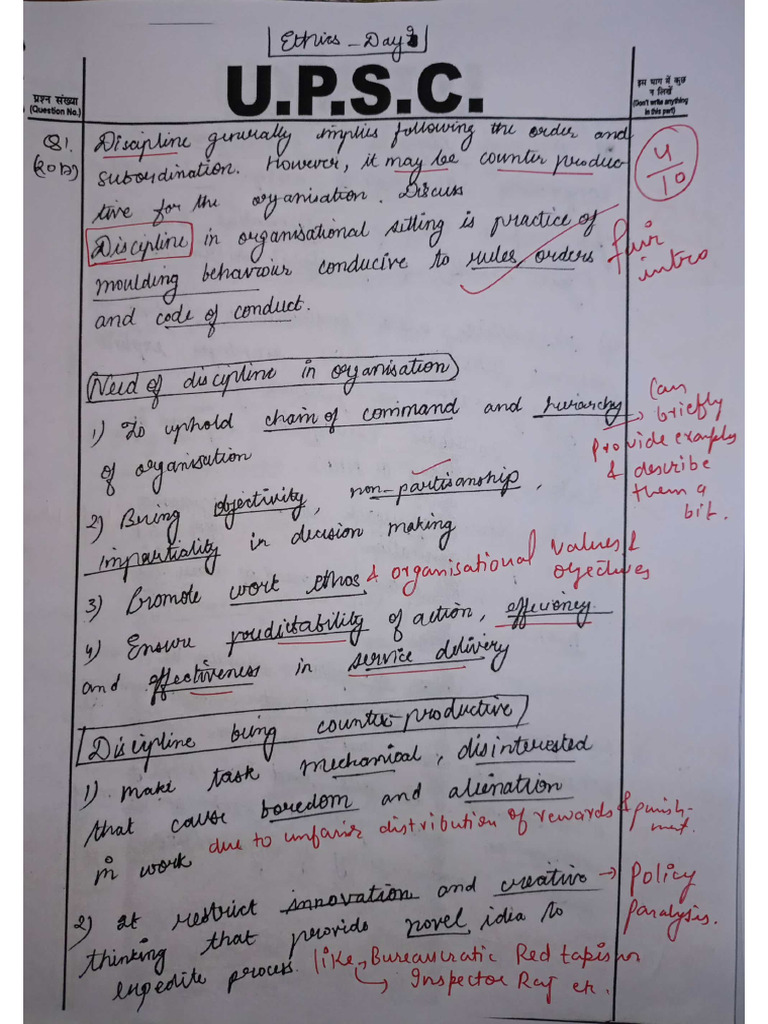 Ethics - Day 9
U.P.S.C.
प्रश्न संख्या
(Question No.)
इस भाग में कुछ
न लिखें
(Don't write anything
in this part)
Q1.
(2017)
Discipline generally implies following the order and
subordination. However, it may be counter produc
tive for the organisation. Discuss
4/10
Discipline in organisational setting is practice of
moulding behaviour conducive to rules orders
and code of conduct.
fair
intro
Need of discipline in organisation
1) To uphold chain of command and hierarchy
of organisation
Can
→ briefly
provide examples
& describe
them a
bit.
2) Bring objectivity, non-partisanship,
impartiality in decision making
3) Promote work ethos & organisational values &
objectives
4) Ensure predictability of action, efficiency
and effectiveness in service delivery
Discipline being counter-productive
1) make task mechanical, disinterested
that cause boredom and alienation
in work due to unfair distribution of rewards & punish-
ment.
2) It restrict innovation and creative → Policy
paralysis.
thinking that provide novel idea to
expedite process. like → Bureaucratic Red tapism
→ Inspector Raj etc.